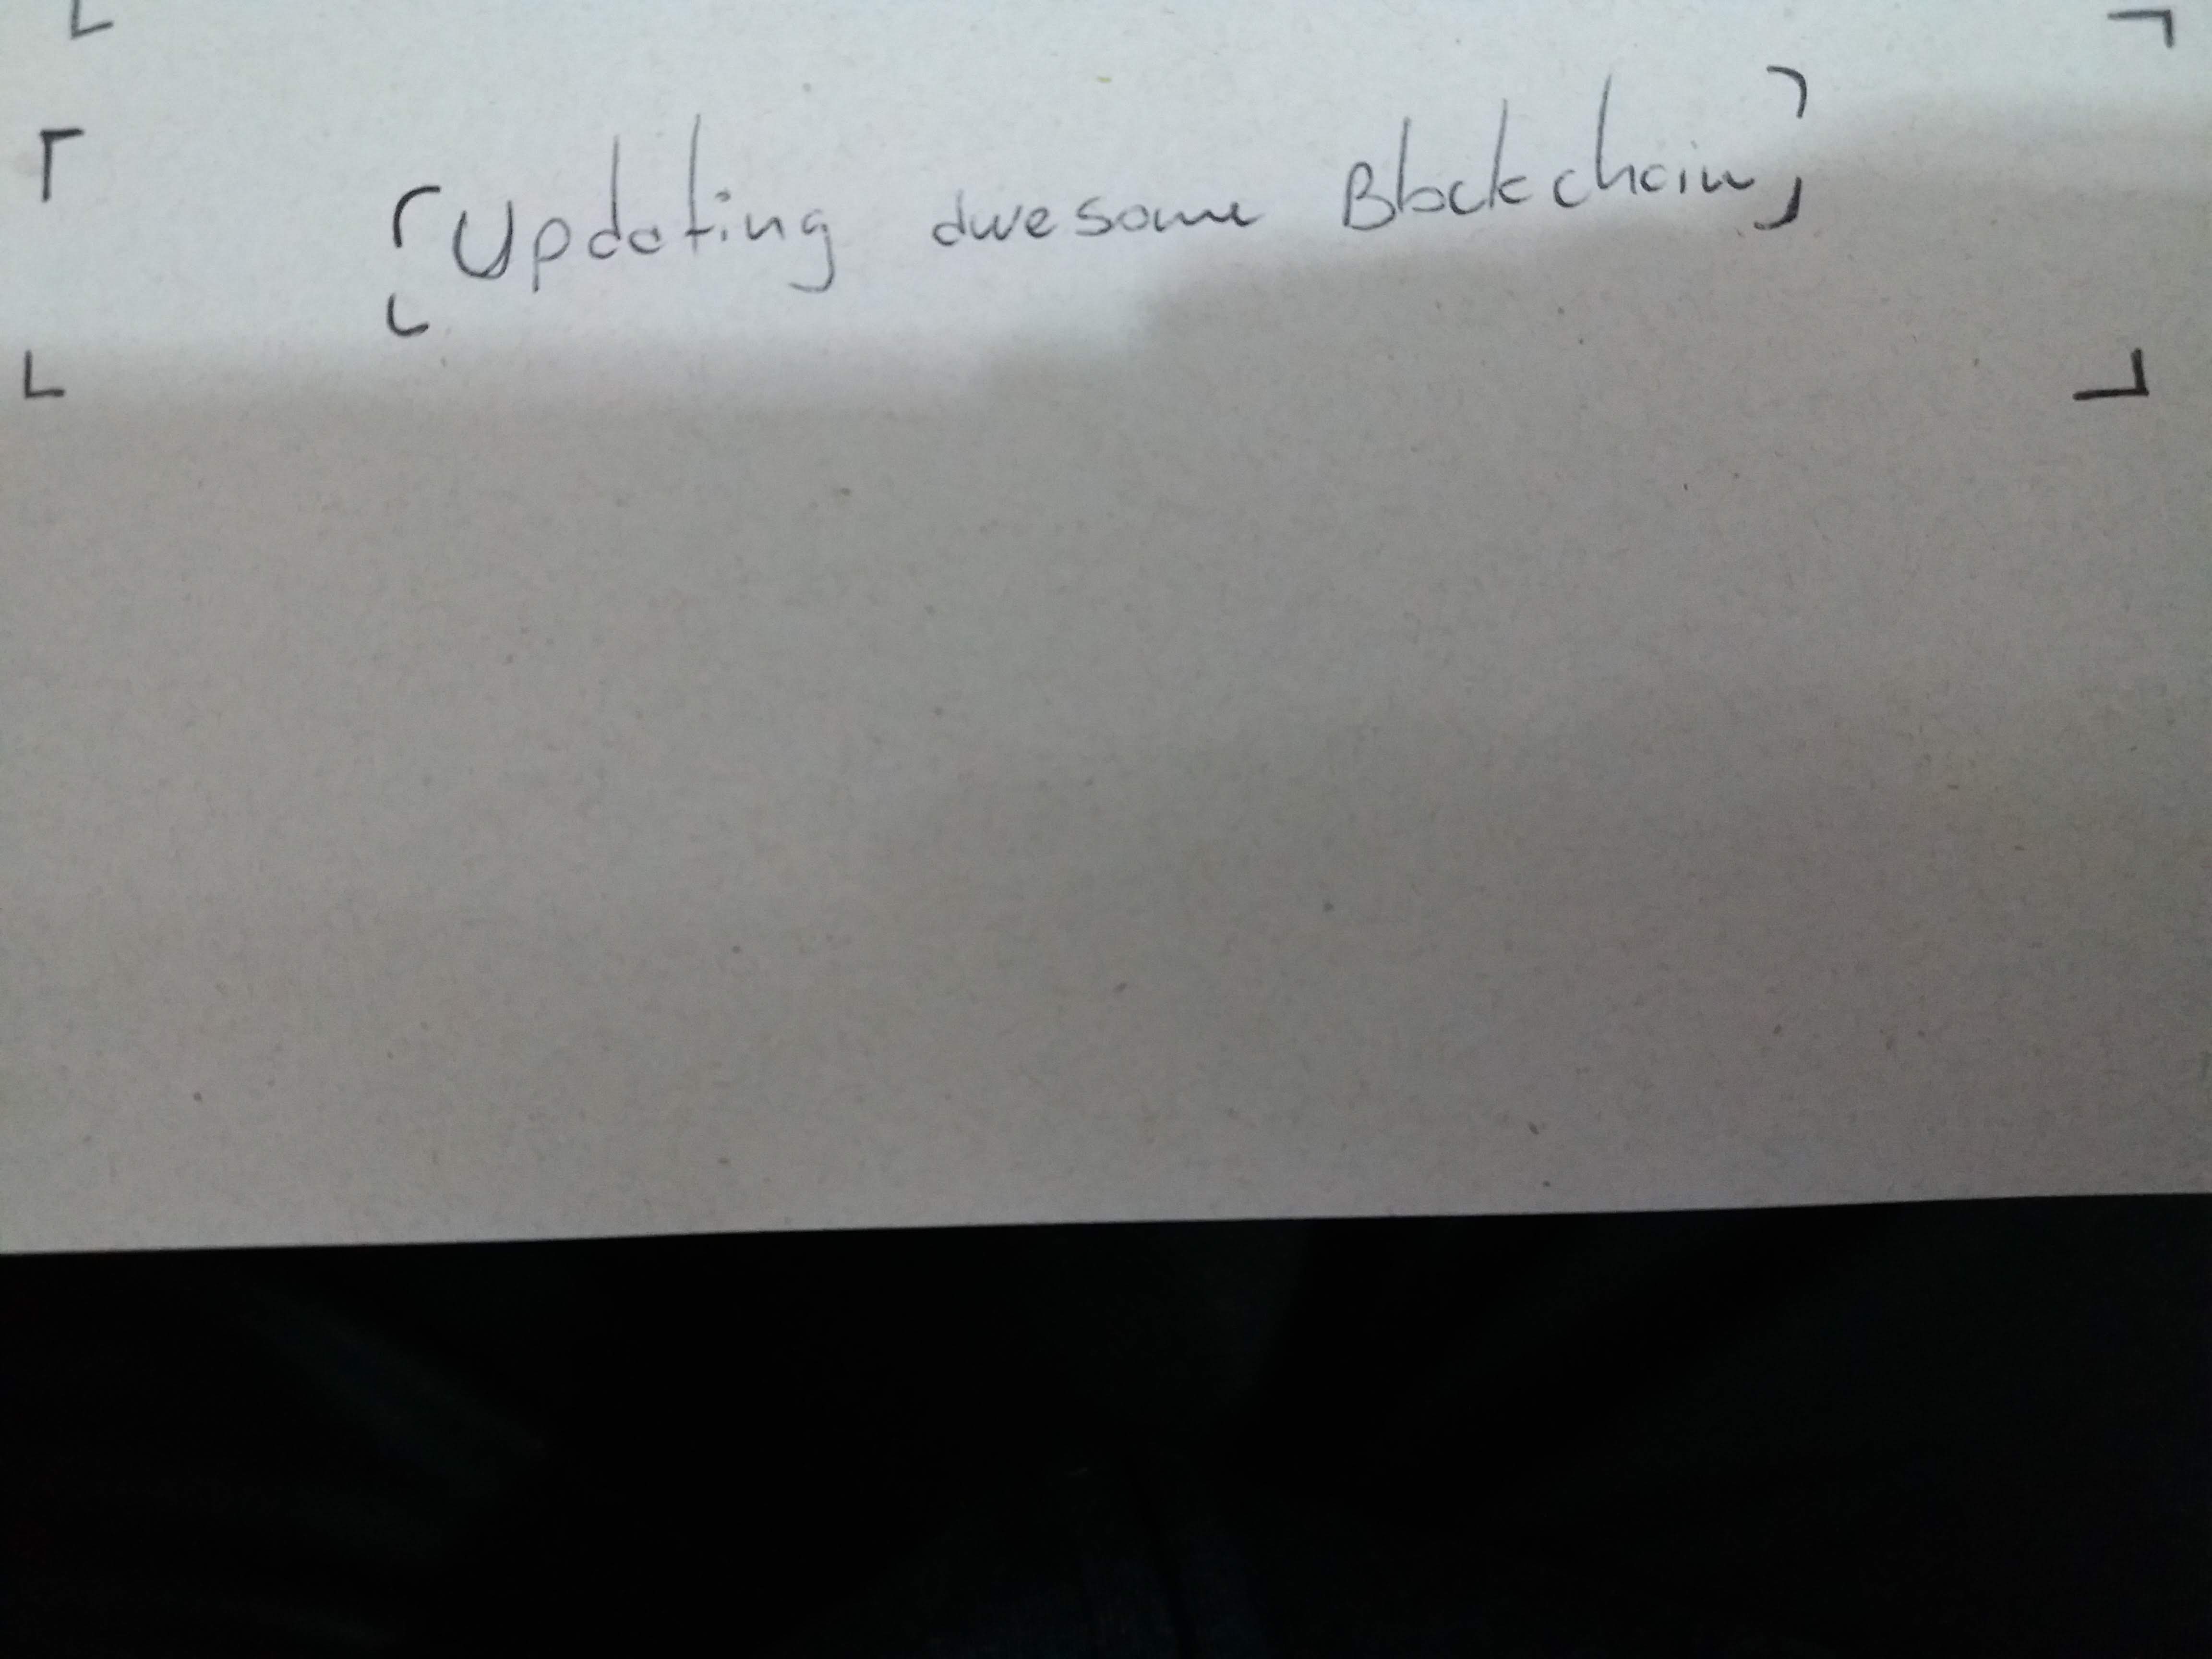 Updating awesome Blockchain